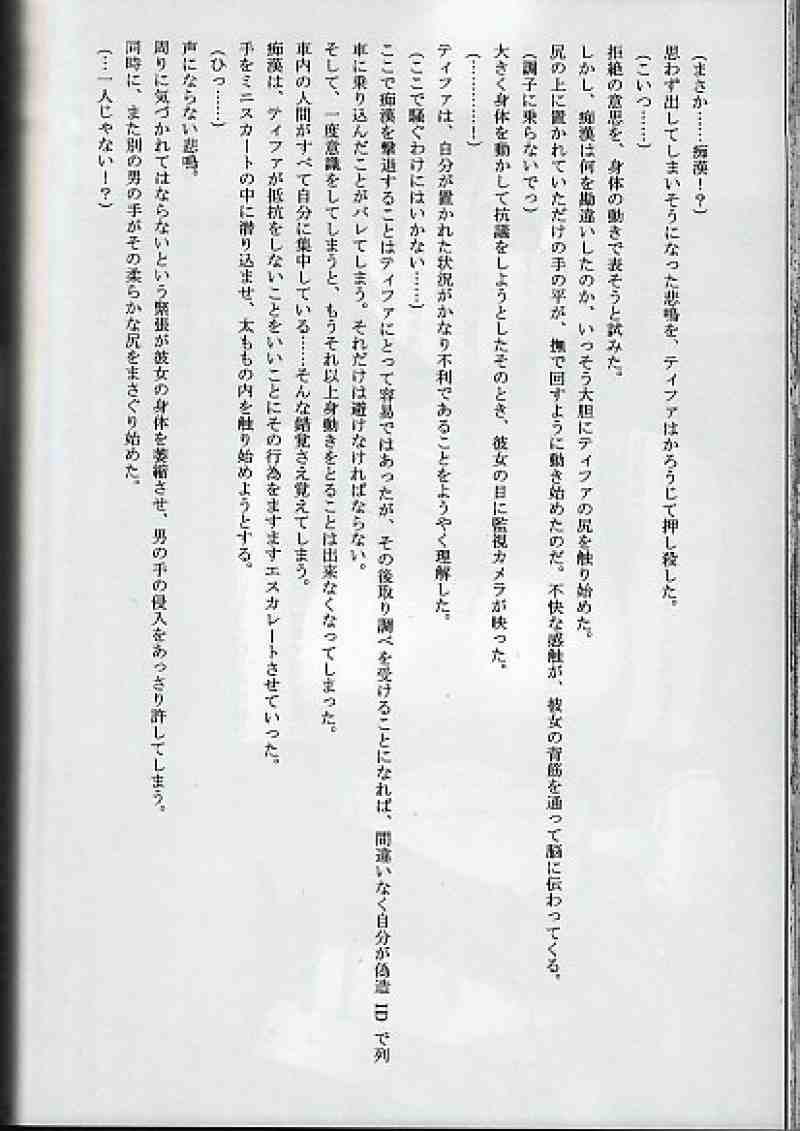 (まさか……痴漢！？)
思わず出してしまいそうになった悲鳴を、ティファはかろうじて押し殺した。
(こいつ……)
拒絶の意思を、身体の動きで表そうと試みた。
しかし、痴漢は何を勘違いしたのか、いっそう大胆にティファの尻を触り始めた。
尻の上に置かれていただけの手の平が、撫で回すように動き始めたのだ。不快な感触が、彼女の背筋を通って脳に伝わってくる。
(調子に乗らないでっ)
大きく身体を動かして抗議をしようとしたそのとき、彼女の目に監視カメラが映った。
(…………！)
ティファは、自分が置かれた状況がかなり不利であることをようやく理解した。
(ここで騒ぐわけにはいかない……)
ここで痴漢を撃退することはティファにとって容易ではあったが、その後取り調べを受けることになれば、間違いなく自分が偽造IDで列
車に乗り込んだことがバレてしまう。それだけは避けなければならない。
そして、一度意識をしてしまうと、もうそれ以上身動きをとることは出来なくなってしまった。
車内の人間がすべて自分に集中している……そんな錯覚さえ覚えてしまう。
痴漢は、ティファが抵抗をしないことをいいことにその行為をますますエスカレートさせていった。
手をミニスカートの中に潜り込ませ、太ももの内を触り始めようとする。
(ひっ……)
声にならない悲鳴。
周りに気づかれてはならないという緊張が彼女の身体を萎縮させ、男の手の侵入をあっさり許してしまう。
同時に、また別の男の手がその柔らかな尻をまさぐり始めた。
(…一人じゃない！？)